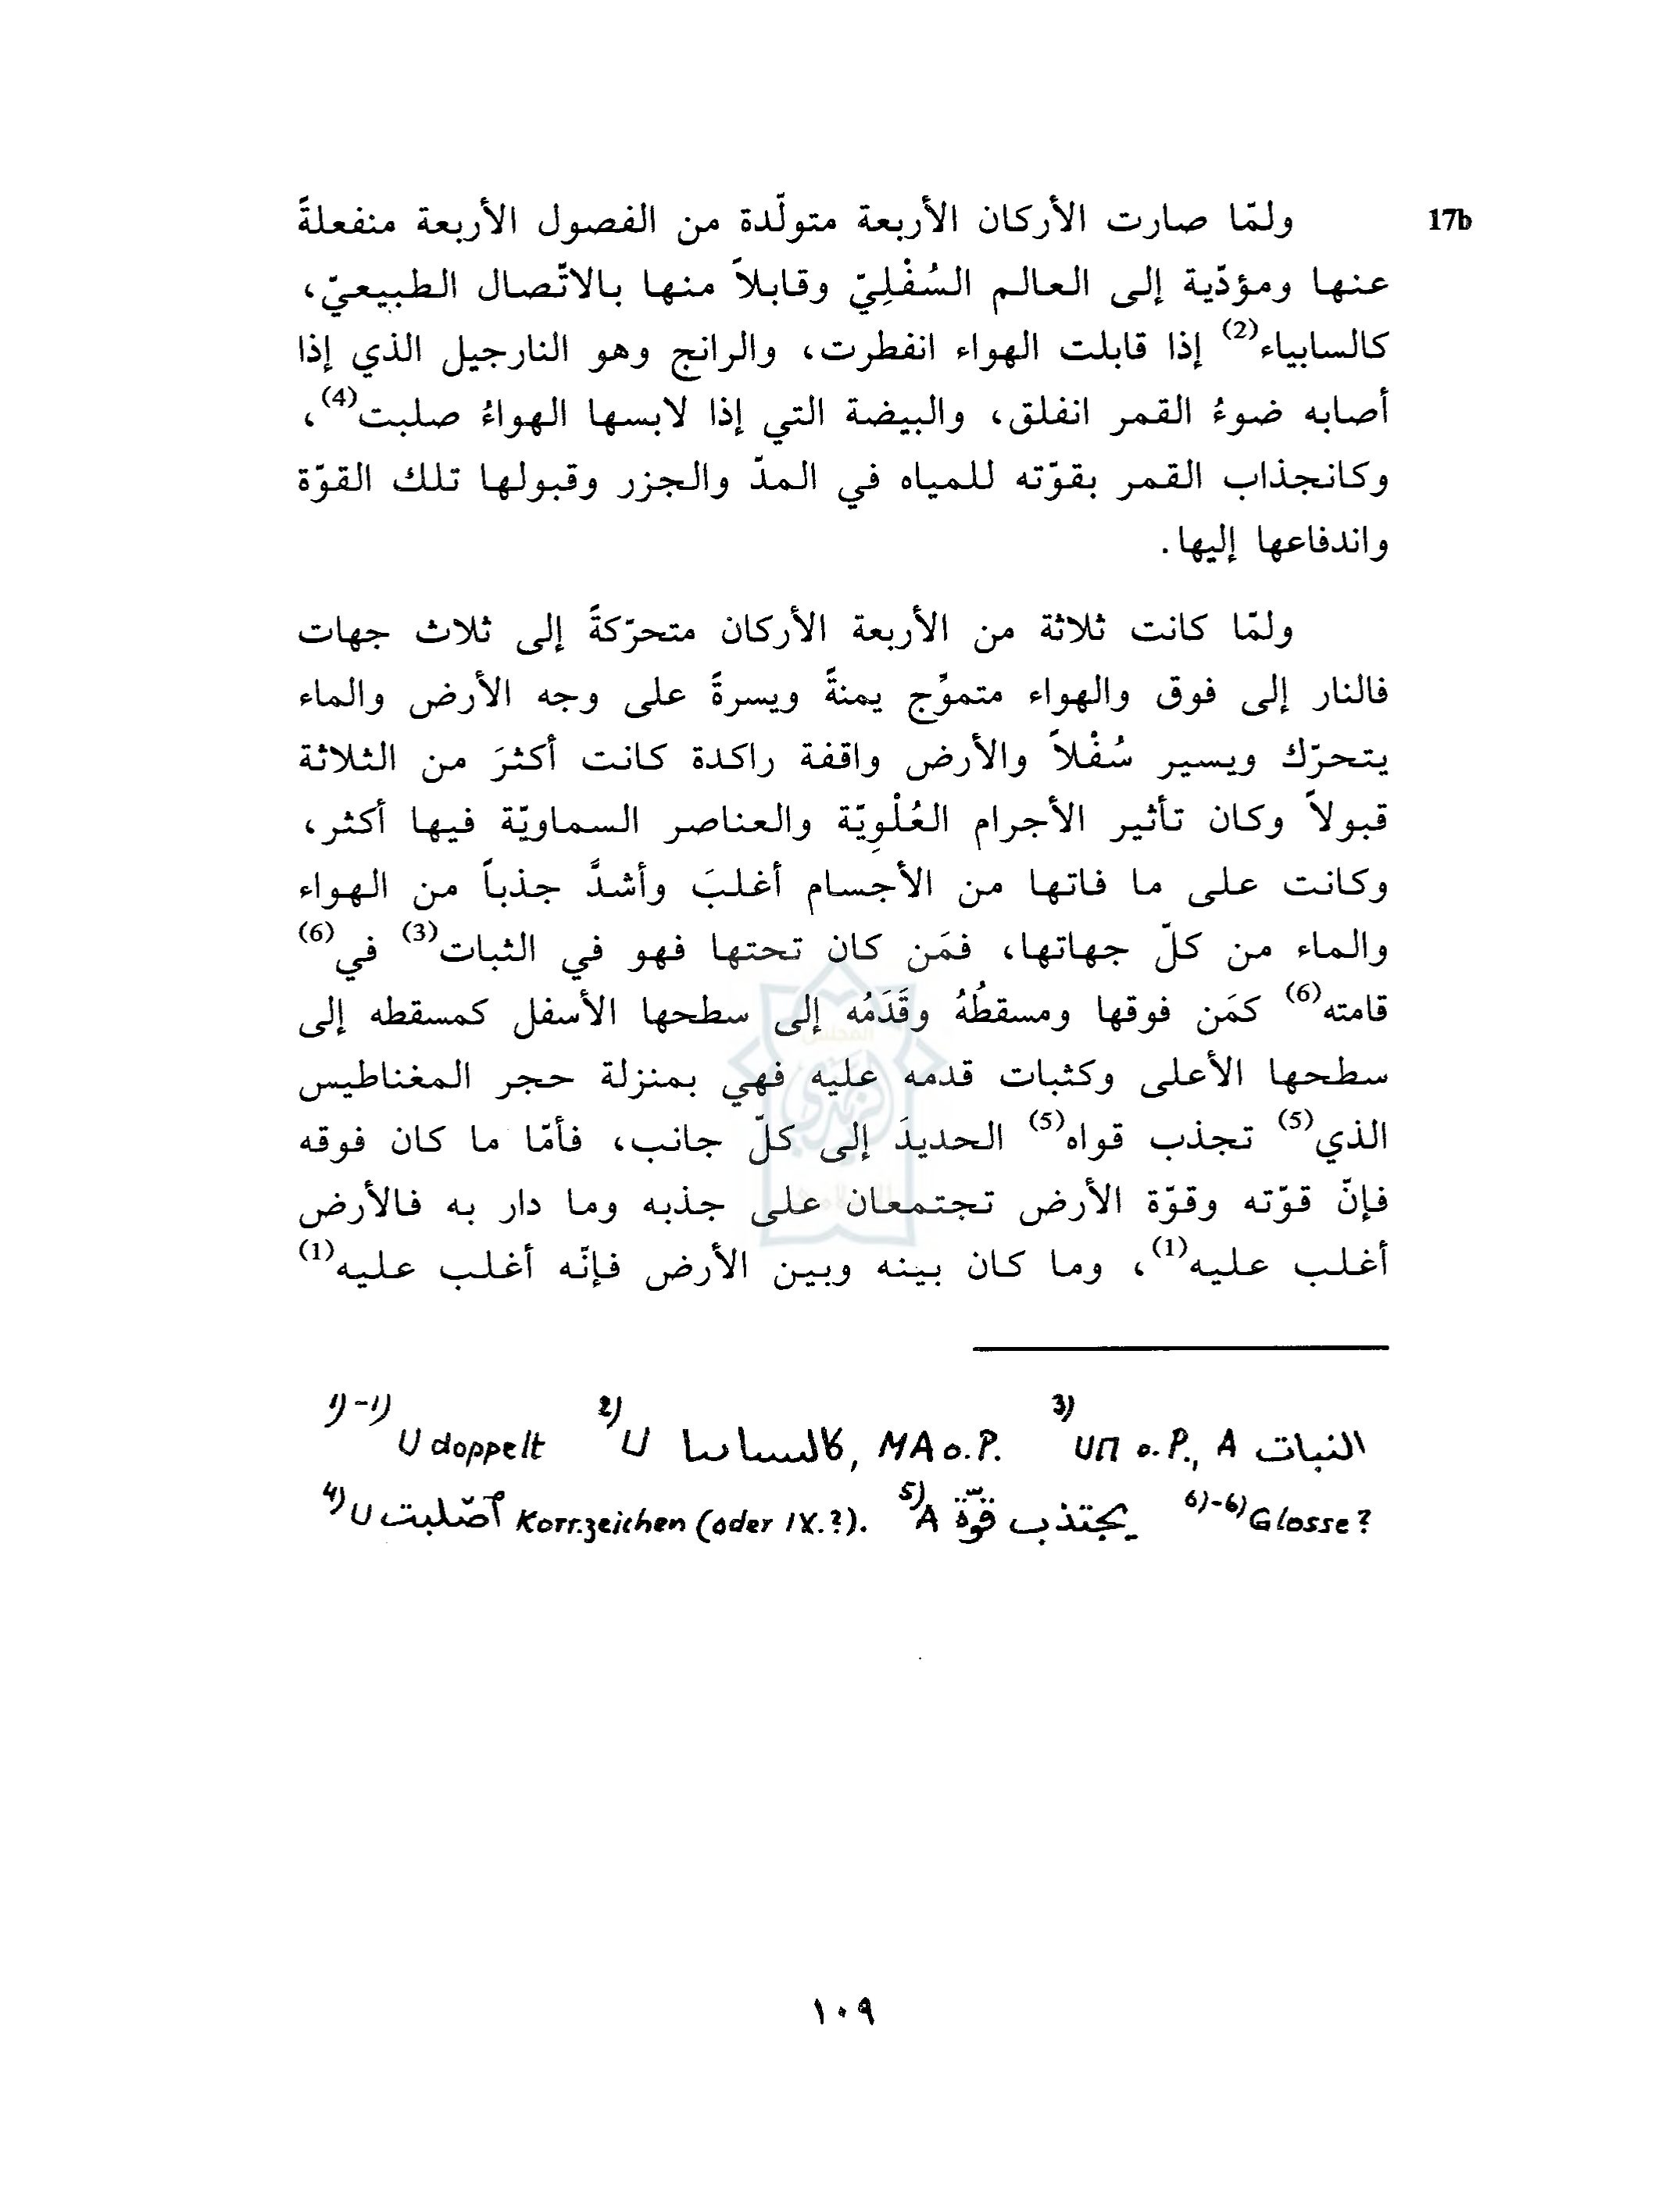 17b
ولمّا صارت الأركان الأربعة متولّدة من الفصول الأربعة منفعلةً
عنها ومؤدّية إلى العالم السُفْلِيّ وقابلاً منها بالاتّصال الطبيعيّ،
كالسابياء(2) إذا قابلت الهواء انفطرت، والرانج وهو النارجيل الذي إذا
أصابه ضوءُ القمر انفلق، والبيضة التي إذا لابسها الهواءُ صلبت(4)،
وكانجذاب القمر بقوّته للمياه في المدّ والجزر وقبولها تلك القوّة
واندفاعها إليها.
ولمّا كانت ثلاثة من الأربعة الأركان متحرّكةً إلى ثلاث جهات
فالنار إلى فوق والهواء متموِّج يمنةً ويسرةً على وجه الأرض والماء
يتحرّك ويسير سُفْلاً والأرض واقفة راكدة كانت أكثرَ من الثلاثة
قبولاً وكان تأثير الأجرام العُلْوِيّة والعناصر السماويّة فيها أكثر،
وكانت على ما فاتها من الأجسام أغلبَ وأشدَّ جذباً من الهواء
والماء من كلّ جهاتها، فمَن كان تحتها فهو في الثبات(3) في(6)
قامته(6) كمَن فوقها ومسقطُهُ وقَدَمُه إلى سطحها الأسفل كمسقطه إلى
سطحها الأعلى وكثبات قدمه عليه فهي بمنزلة حجر المغناطيس
الذي(5) تجذب قواه(5) الحديدَ إلى كلّ جانب، فأمّا ما كان فوقه
فإنّ قوّته وقوّة الأرض تجتمعان على جذبه وما دار به فالأرض
أغلب عليه(1)، وما كان بينه وبين الأرض فإنّه أغلب عليه(1)
1)-1) U doppelt 2) U كالساسا, MA o.P. 3) UΠ o.P., A النبات
4) U أصّلبت Korr.zeichen (oder IX.?). 5) A يجتذب قوّة 6)-6) Glosse?
١٠٩